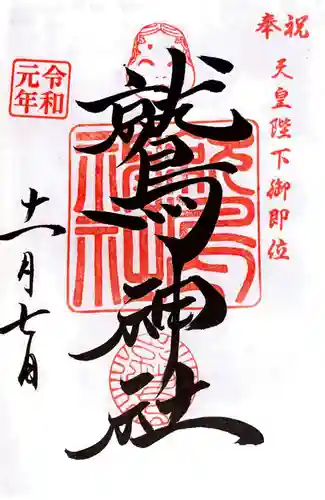 奉祝
天皇陛下御即位
鷲神社
令和
元年
十一月七日